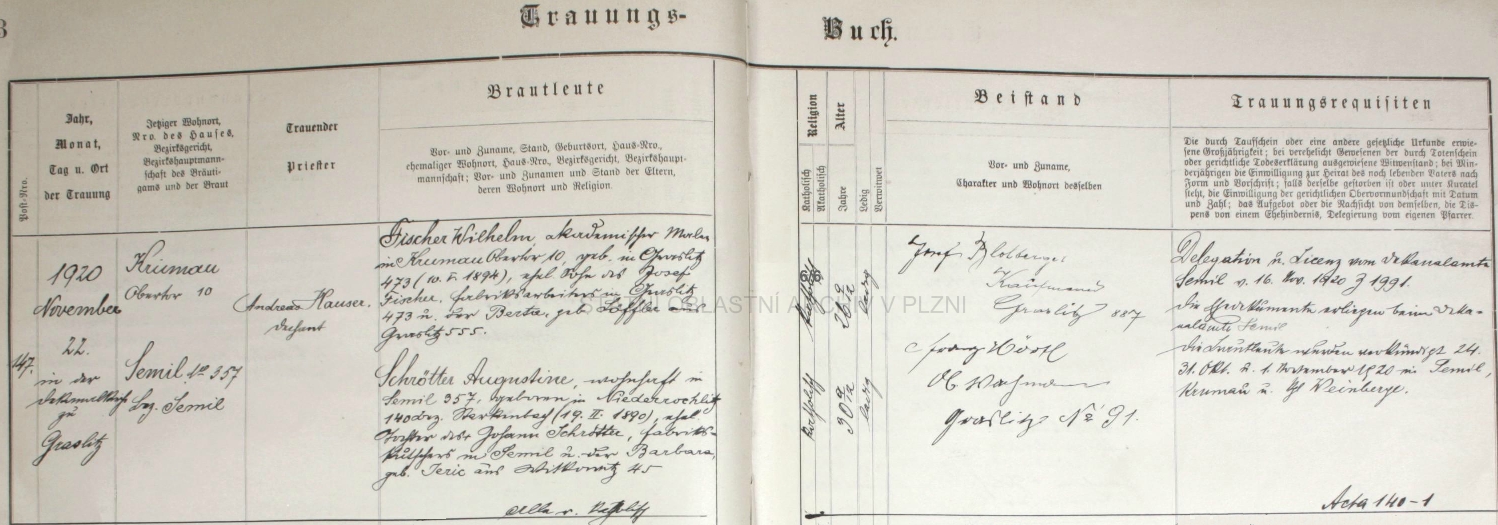 3
Trauungs-
Buch.
Post-Nro.
Jahr,
Monat,
Tag u. Ort
der Trauung
Jetziger Wohnort,
Nro. des Hauses,
Bezirksgericht,
Bezirkshauptmann-
schaft des Bräuti-
gams und der Braut
Trauender
Priester
Brautleute
Vor- und Zuname, Stand, Geburtsort, Haus-Nro.,
ehemaliger Wohnort, Haus-Nro., Bezirksgericht, Bezirkshaupt-
mannschaft; Vor- und Zunamen und Stand der Eltern,
deren Wohnort und Religion.
Religion
Katholisch
Akatholisch
Alter
Jahre
Ledig
Verwitwet
Beistand
Vor- und Zuname,
Charakter und Wohnort desselben
Trauungsrequisiten
Die durch Taufschein oder eine andere gesetzliche Urkunde erwie-
sene Großjährigkeit; bei verehelicht Gewesenen der durch Totenschein
oder gerichtliche Todeserklärung ausgewiesene Witwenstand; bei Min-
derjährigen die Einwilligung zur Heirat des noch lebenden Vaters nach
Form und Vorschrift; falls derselbe gestorben ist oder unter Kuratel
steht, die Einwilligung der gerichtlichen Obervormundschaft mit Datum
und Zahl; das Aufgebot oder die Nachsicht von demselben, die Dis-
pens von einem Ehehindernis, Delegierung vom eigenen Pfarrer.
147.
1920
November
22.
in der
Dekanalkirche
zu
Graslitz
Krumau
Obertor 10
Semil No 357
bez. Semil
Andreas Hauser.
Dechant
Fischer Wilhelm, akademischer Maler
in Krumau Obertor 10, geb. in Graslitz
473 (10. V. 1894), ehel. Sohn des Josef
Fischer, Fabriksarbeiters in Graslitz
473 u. der Berta, geb. Löffler aus
Graslitz 555.
Schrötter Augustine, wohnhaft in
Semil 357, geboren in Niederrochlitz
140 bez. Starkenbach (19. II. 1890), ehel.
Tochter des Johann Schrötter, Fabriks-
kutschers in Semil u. der Barbara,
geb. Jeric aus Witkowitz 45
Alle r. kathol.
katholisch
26
ledig
katholisch
30
ledig
Josef
Kaufmann
Graslitz 887
Franz Hörtl
Graslitz No 91.
Delegation u. Licenz vom Dekanalamte
Semil v. 16. Nov. 1920 Z 1991.
Die Ehedokumente erliegen beim Deka-
nalamte Semil
Die Brautleute wurden verkündigt 24.
31. Okt. u. 1. November 1920 in Semil,
Krumau u. Weinberge.
Acta 140-1
STÁTNÍ OBLASTNÍ ARCHIV V PLZNI